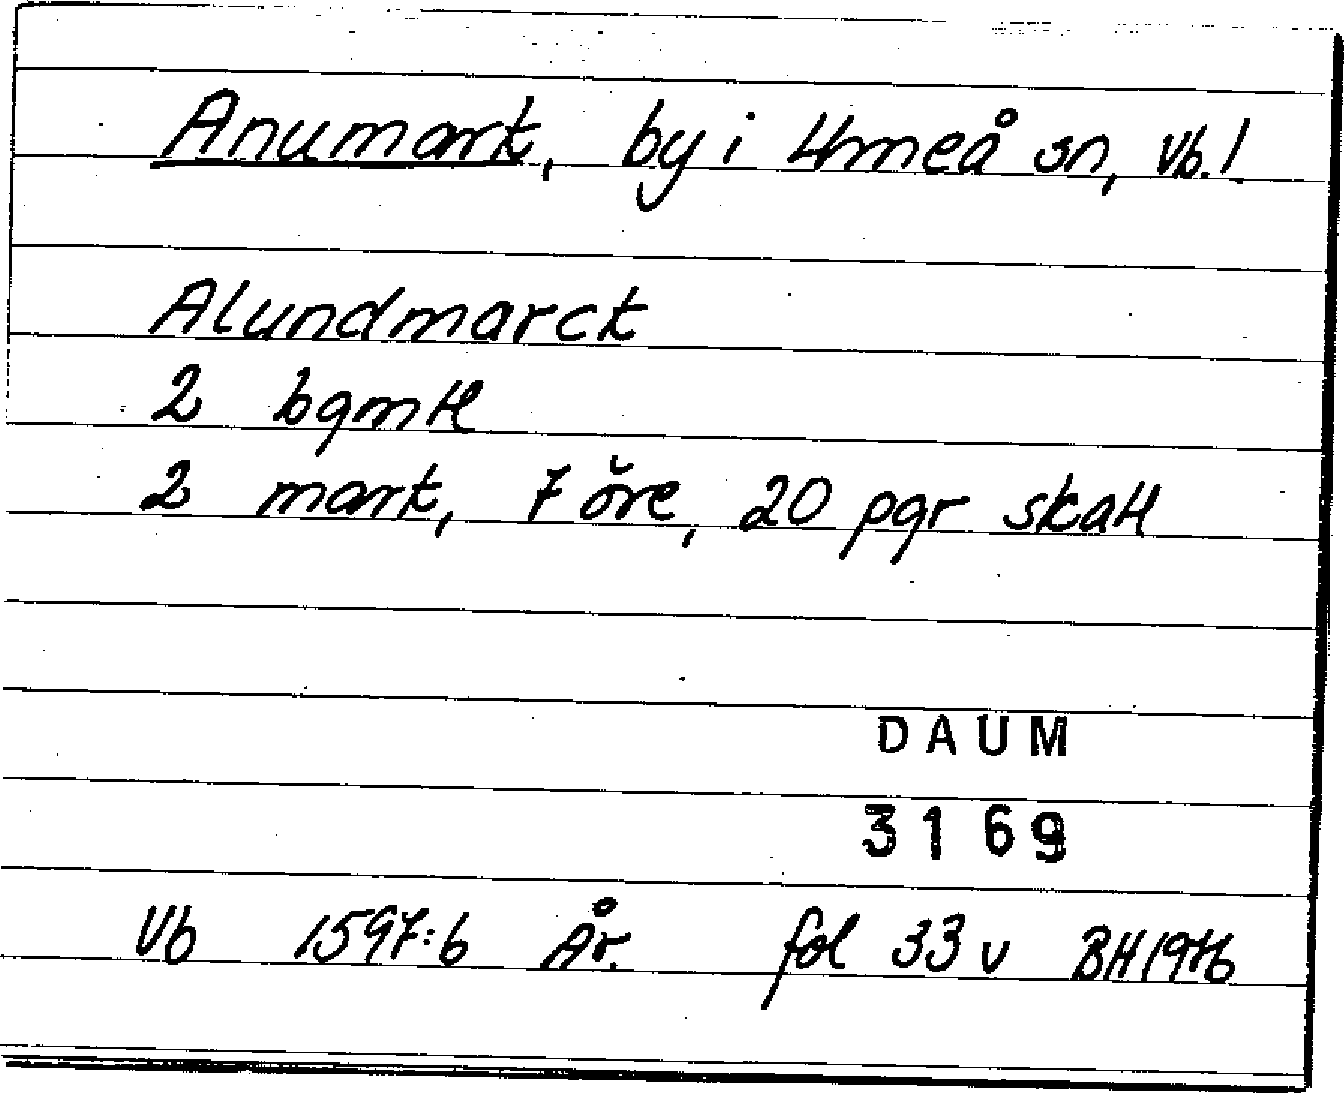 Anumark, by i Umeå sn, Vb. l.
Alundmarck
2 bgmtl
2 mark, 7 öre, 20 pgr skatt
DAUM
3169
Vb 1597:b År. fol 33 v BH 1976